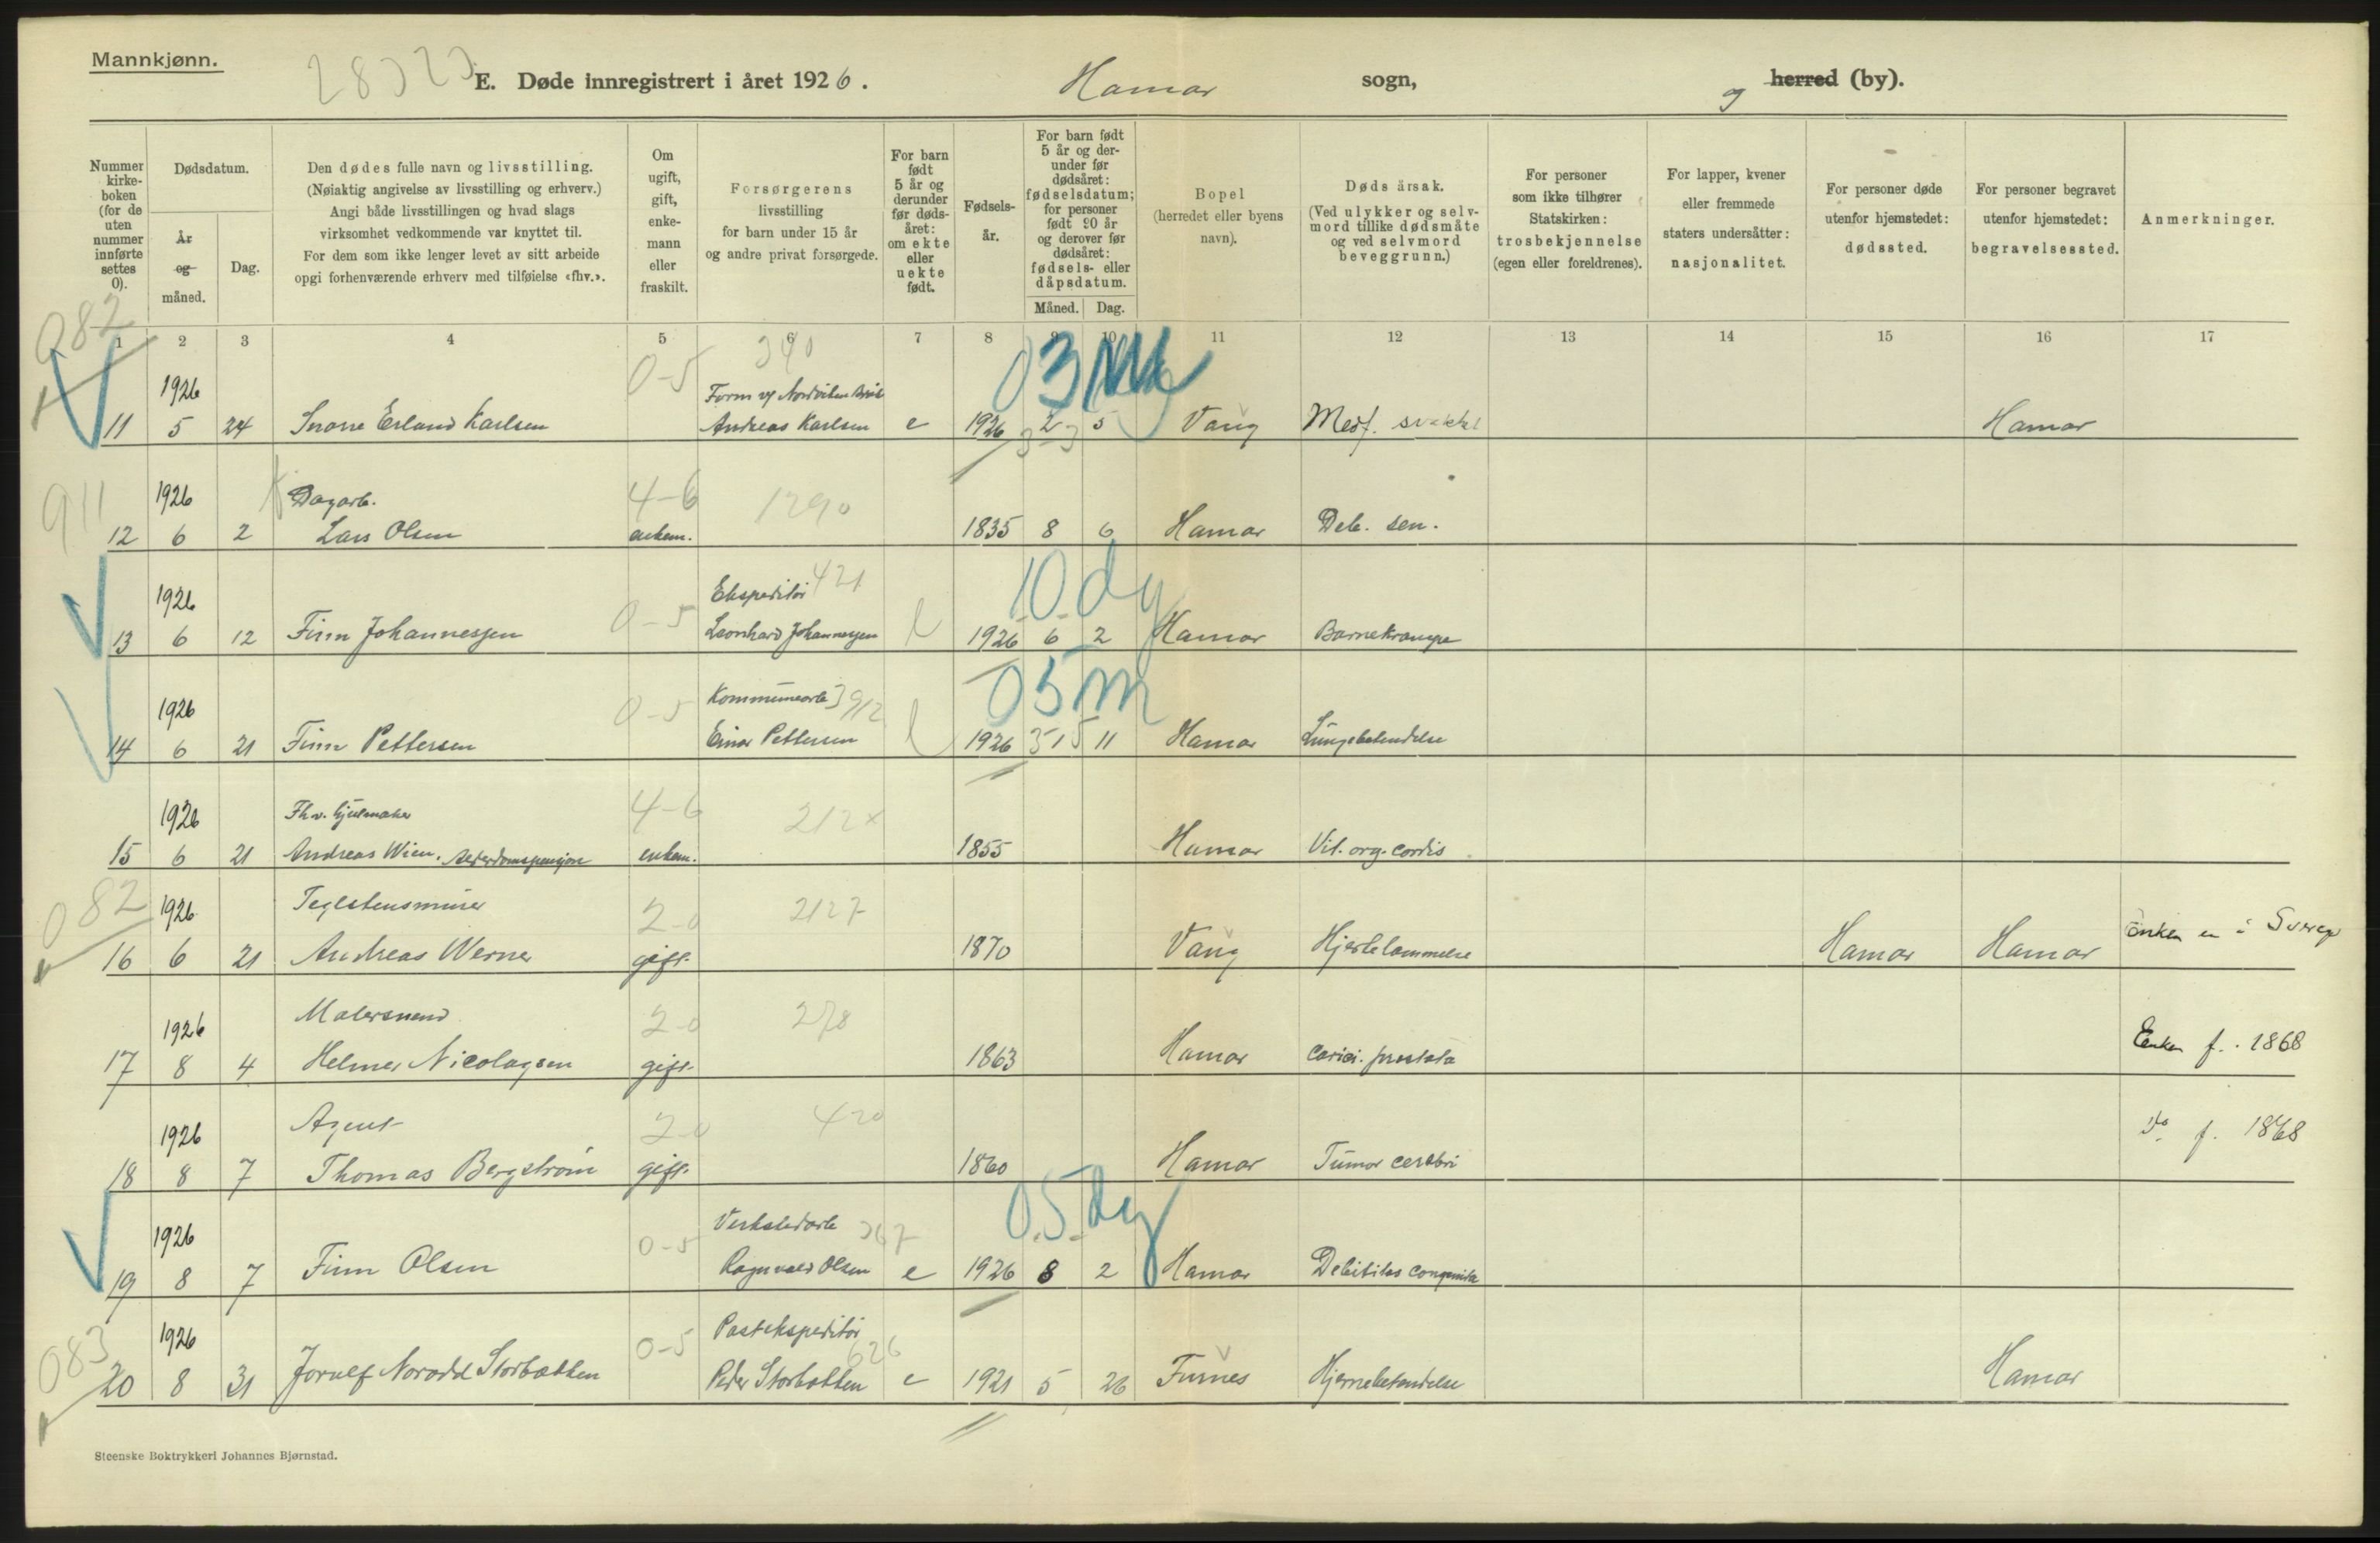 Mannkjønn.
E. Døde innregistrert i året 1926. Hamar sogn, og herred (by).
Nummer kirkeboken (for de uten nummer innførte settes 0).
Dødsdatum.
År og måned.
Dag.
Den dødes fulle navn og livsstilling.
(Nøiaktig angivelse av livsstilling og erhverv.)
Angi både livsstillingen og hvad slags
virksomhet vedkommende var knyttet til.
For dem som ikke lenger levet av sitt arbeide
opgi forhenværende erhverv med tilføielse «fhv.».
Om ugift, gift, enkemann eller fraskilt.
Forsørgerens livsstilling
for barn under 15 år
og andre privat forsørgede.
For barn født 5 år og derunder før dødsåret: om ekte eller uekte født.
Fødselsår.
For barn født 5 år og derunder før dødsåret: fødselsdatum; for personer født 90 år og derover før dødsåret: fødsels- eller dåpsdatum.
Måned. Dag.
Bopel
(herredet eller byens navn).
Dødsårsak.
(Ved ulykker og selvmord tillike dødsmåte og ved selvmord beveggrunn.)
For personer som ikke tilhører Statskirken: trosbekjennelse (egen eller foreldrenes).
For lapper, kvener eller fremmede staters undersåtter: nasjonalitet.
For personer døde utenfor hjemstedet: dødssted.
For personer begravet utenfor hjemstedet: begravelsessted.
Anmerkninger.
082
1 2 3 4 5 6 7 8 9 10 11 12 13 14 15 16 17
0-5 340 03
1926 Form
11 5 24 Snorre Erland Karlsen Andreas Karlsen e 1926 2 5 Vang Medf. Hamar
911 1926 Dagarb. 4-6 1290
12 6 2 Lars Olsen enkem. 1835 8 6 Hamar Deb. sen.
1926 Ekspeditør 421 10 dg
13 6 12 Finn Johannessen 0-5 Leonhard Johannessen 1926 6 2 Hamar Barnekrampe
1926 0-5 Kommunearb 05 m
14 6 21 Finn Pettersen Einar Pettersen 1926 1 11 Hamar Lungebetendelse
1926 Fhv. hjulmaker 4-6 212x
15 6 21 Andreas Wien. Alderdomspensjon enkem. 1855 Hamar Vit. org. cordis
082 1926 Teglstensmurer 2-0 2127 Enken er i
16 6 21 Andreas Werner gift. 1870 Vang Hjertelammelse Hamar Hamar
1926 Malersvend 2-0 278 Enken f. 1868
17 8 4 Helmer Nicolaysen gift. 1863 Hamar prostata
1926 Agent 2-0 420 Do f. 1868
18 8 7 Thomas Bergstrøm gift. 1860 Hamar Tumor cerebri
1926 0-5 Verkstedarb 367 05 dg
19 8 7 Finn Olsen Ragnvald Olsen e 1926 8 2 Hamar Debilitas congenita
083 1926 0-5 Postekspeditør 626
20 8 31 Jorulf Norodd Storbakken Peder Storbakken e 1921 5 26 Furnes Hjernebetendelse Hamar
Steenske Boktrykkeri Johannes Bjørnstad.